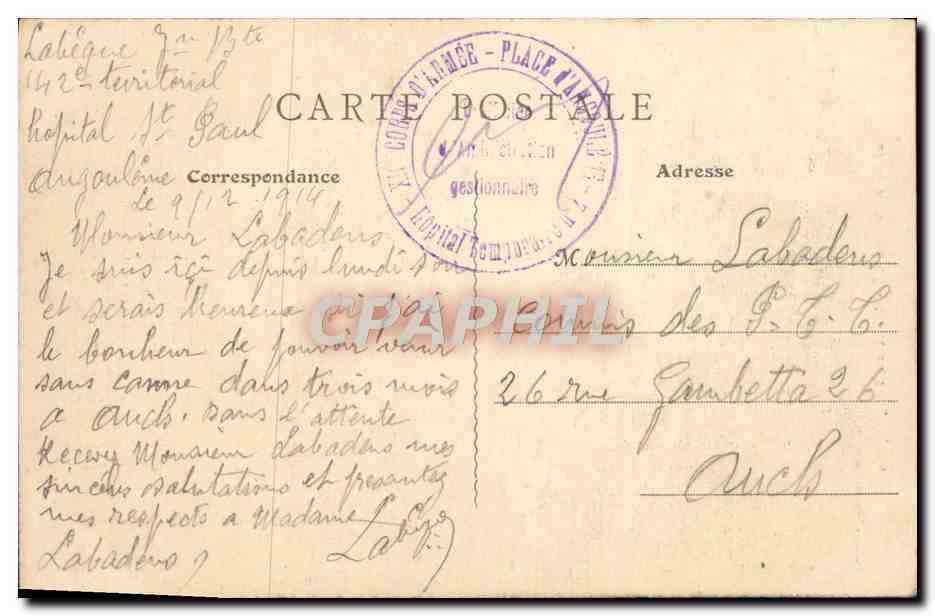 Labèque 7m Bte
142e territorial
hopital St Paul
Angoulême
CARTE POSTALE
Correspondance
Le 9/12 1914
Monsieur Labadens
Je suis içi depuis lundi soir
et serais heureux si j'ai
le bonheur de pouvoir venir
sans canne dans trois mois
a Auch. dans l'attente
Recevez Monsieur Labadens mes
sincères salutations et presentez
mes respects a Madame
Labadens
Labèque
XIIe CORPS D'ARMÉE - PLACE d'ANGOULÊME
d'Administration
gestionnaire
Hôpital Temporaire n
Adresse
Monsieur Labadens
Commis des P. T. T.
26 rue Gambetta 26
Auch
CPAPHIL